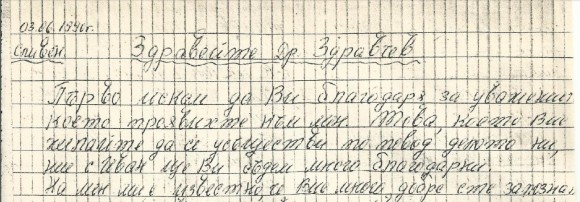 03.06.1996г.
Сливен. Здравейте Др. Здравчев
Първо искам да Ви благодаря за уважението
което проявихте към мен. Това, което Вие
желаейте да се усъществи по повод делото ни,
ние с Иван ще Ви бъдем много благодарни.
На мен ми е известно, че Вие много добре сте запозна